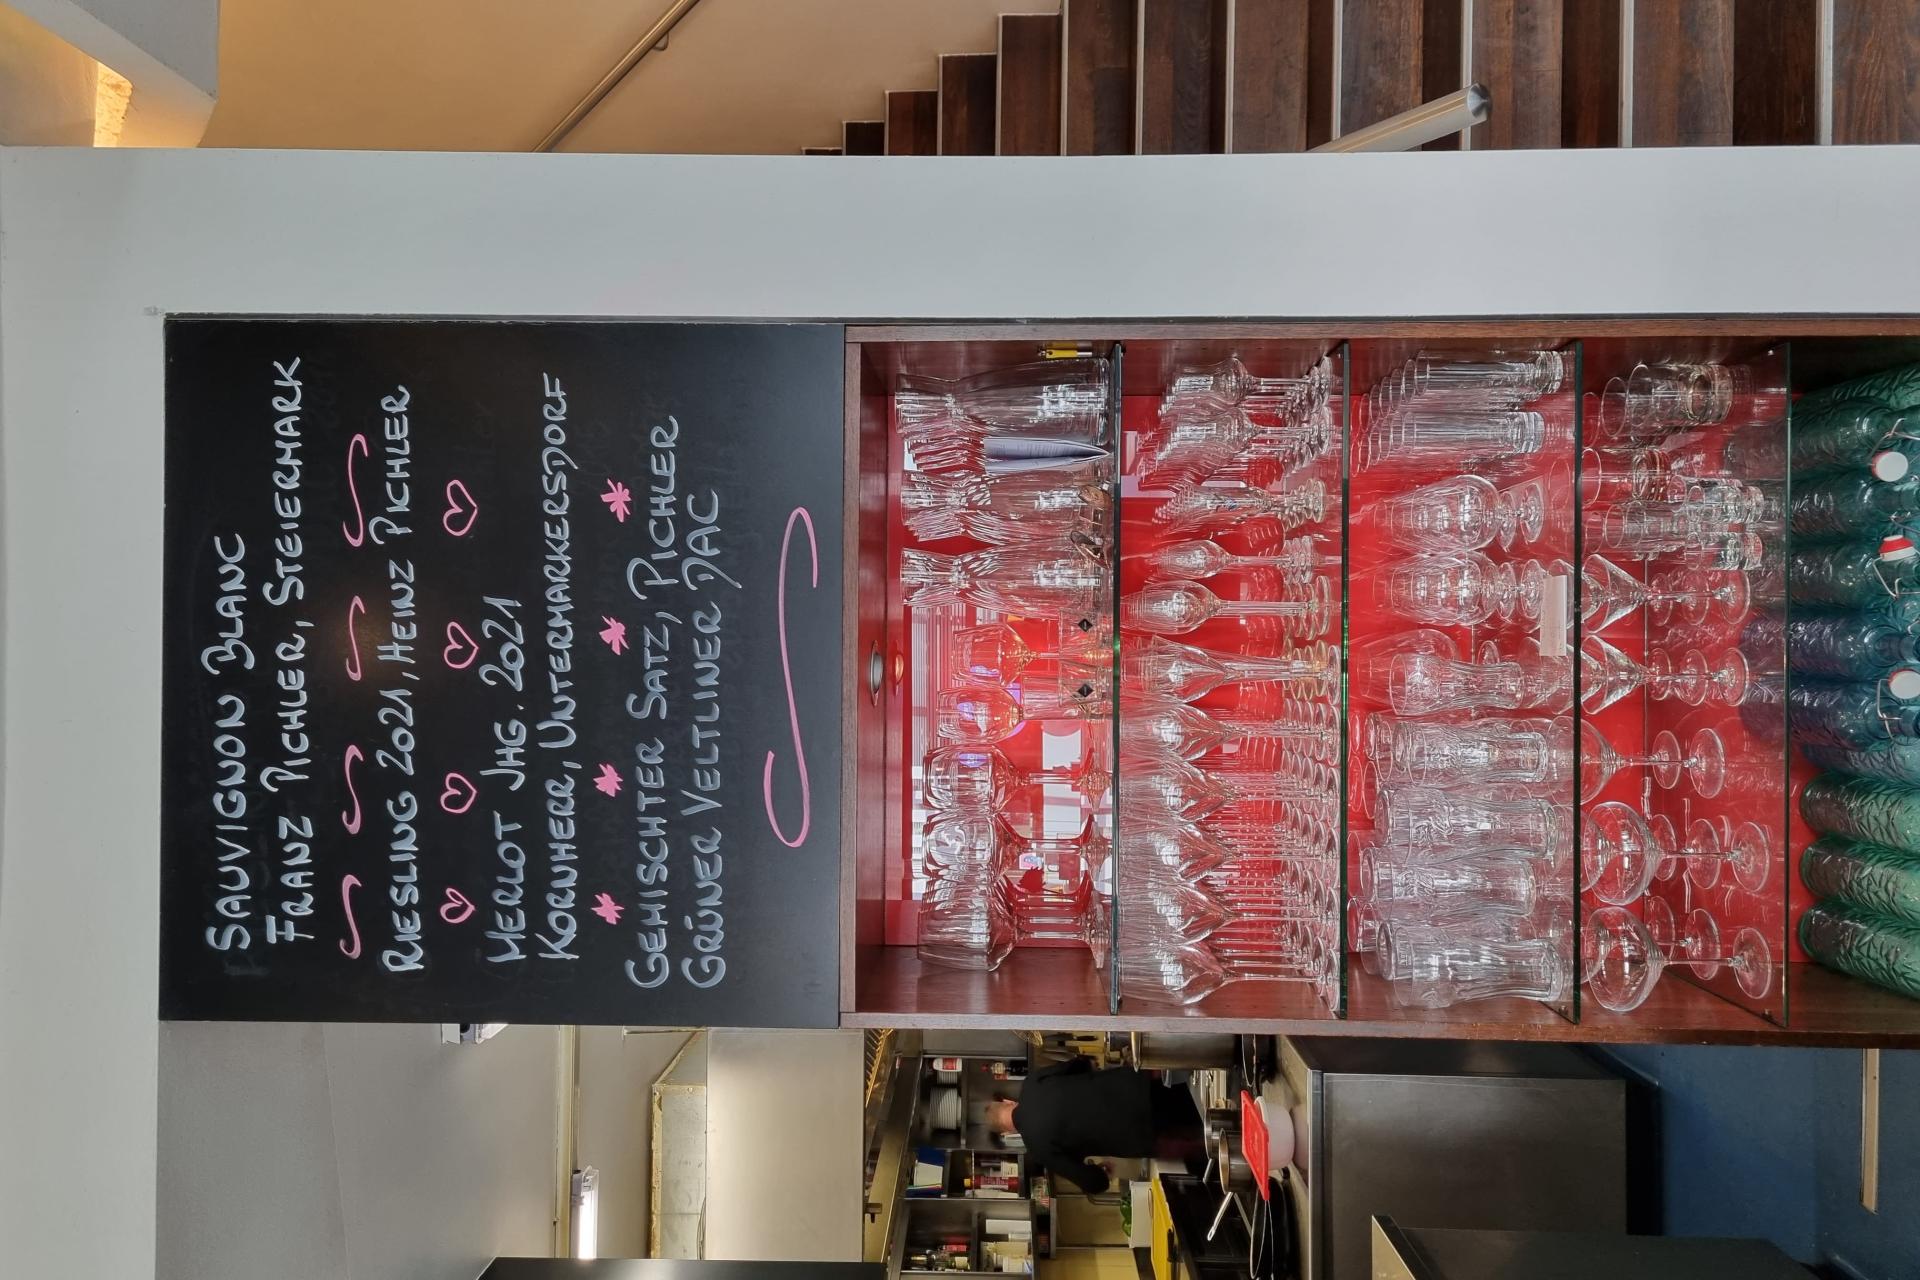 SAUVIGNON BLANC
FRANZ PICHLER, STEIERMARK
RIESLING 2021, HEINZ PICHLER
MERLOT JHG. 2021
KORNHERR, UNTERMARKERSDORF
GEMISCHTER SATZ, PICHLER
GRÜNER VELTLINER DAC